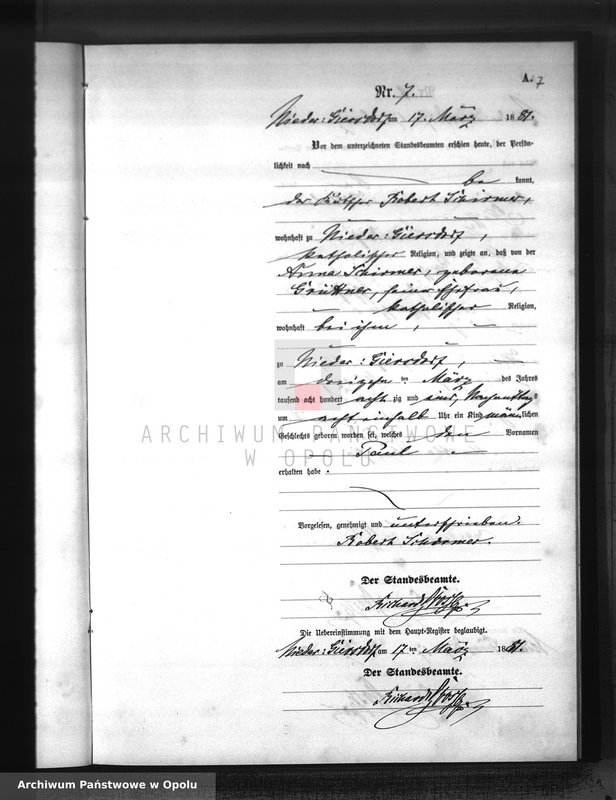 A. 7
Nr. 7.
Nieder-Giersdorf am 17. März 1881.
Vor dem unterzeichneten Standesbeamten erschien heute, der Persön-
lichkeit nach
be kannt,
der Kutscher Robert Schirmer,
wohnhaft zu Nieder-Giersdorf,
katholischer Religion, und zeigte an, daß von der
Anna Schirmer, geborene
Grüttner, seiner Ehefrau,
katholischer Religion,
wohnhaft bei ihm,
zu Nieder-Giersdorf,
am dreizehn ten März des Jahres
tausend acht hundert acht zig und eins, Nachmittag
um acht einhalb Uhr ein Kind männlichen
Geschlechts geboren worden sei, welches den Vornamen
Paul
erhalten habe.
Vorgelesen, genehmigt und unterschrieben.
Robert Schirmer.
Der Standesbeamte.
Die Uebereinstimmung mit dem Haupt-Register beglaubigt.
Nieder-Giersdorf am 17ten März 1881.
Der Standesbeamte.
ARCHIWUM PAŃSTWOWE
W OPOLU
Archiwum Państwowe w Opolu